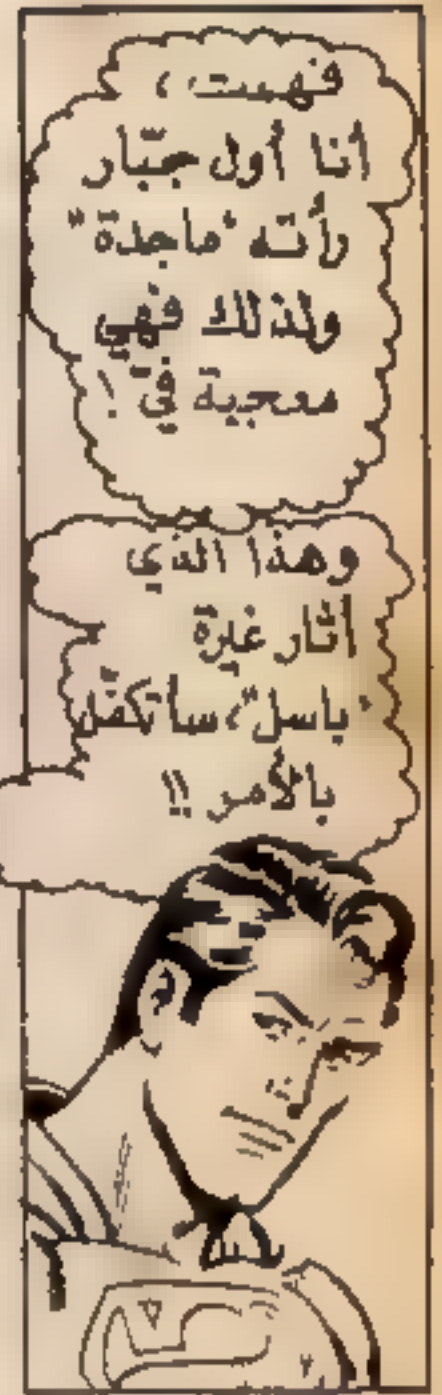 فهمت،
أنا أول جبّار
رأته "ماجدة"
ولذلك فهي
معجبة فيّ!
وهذا الذي
أثار غيرة
"باسل"، سأتكفّل
بالأمر!!